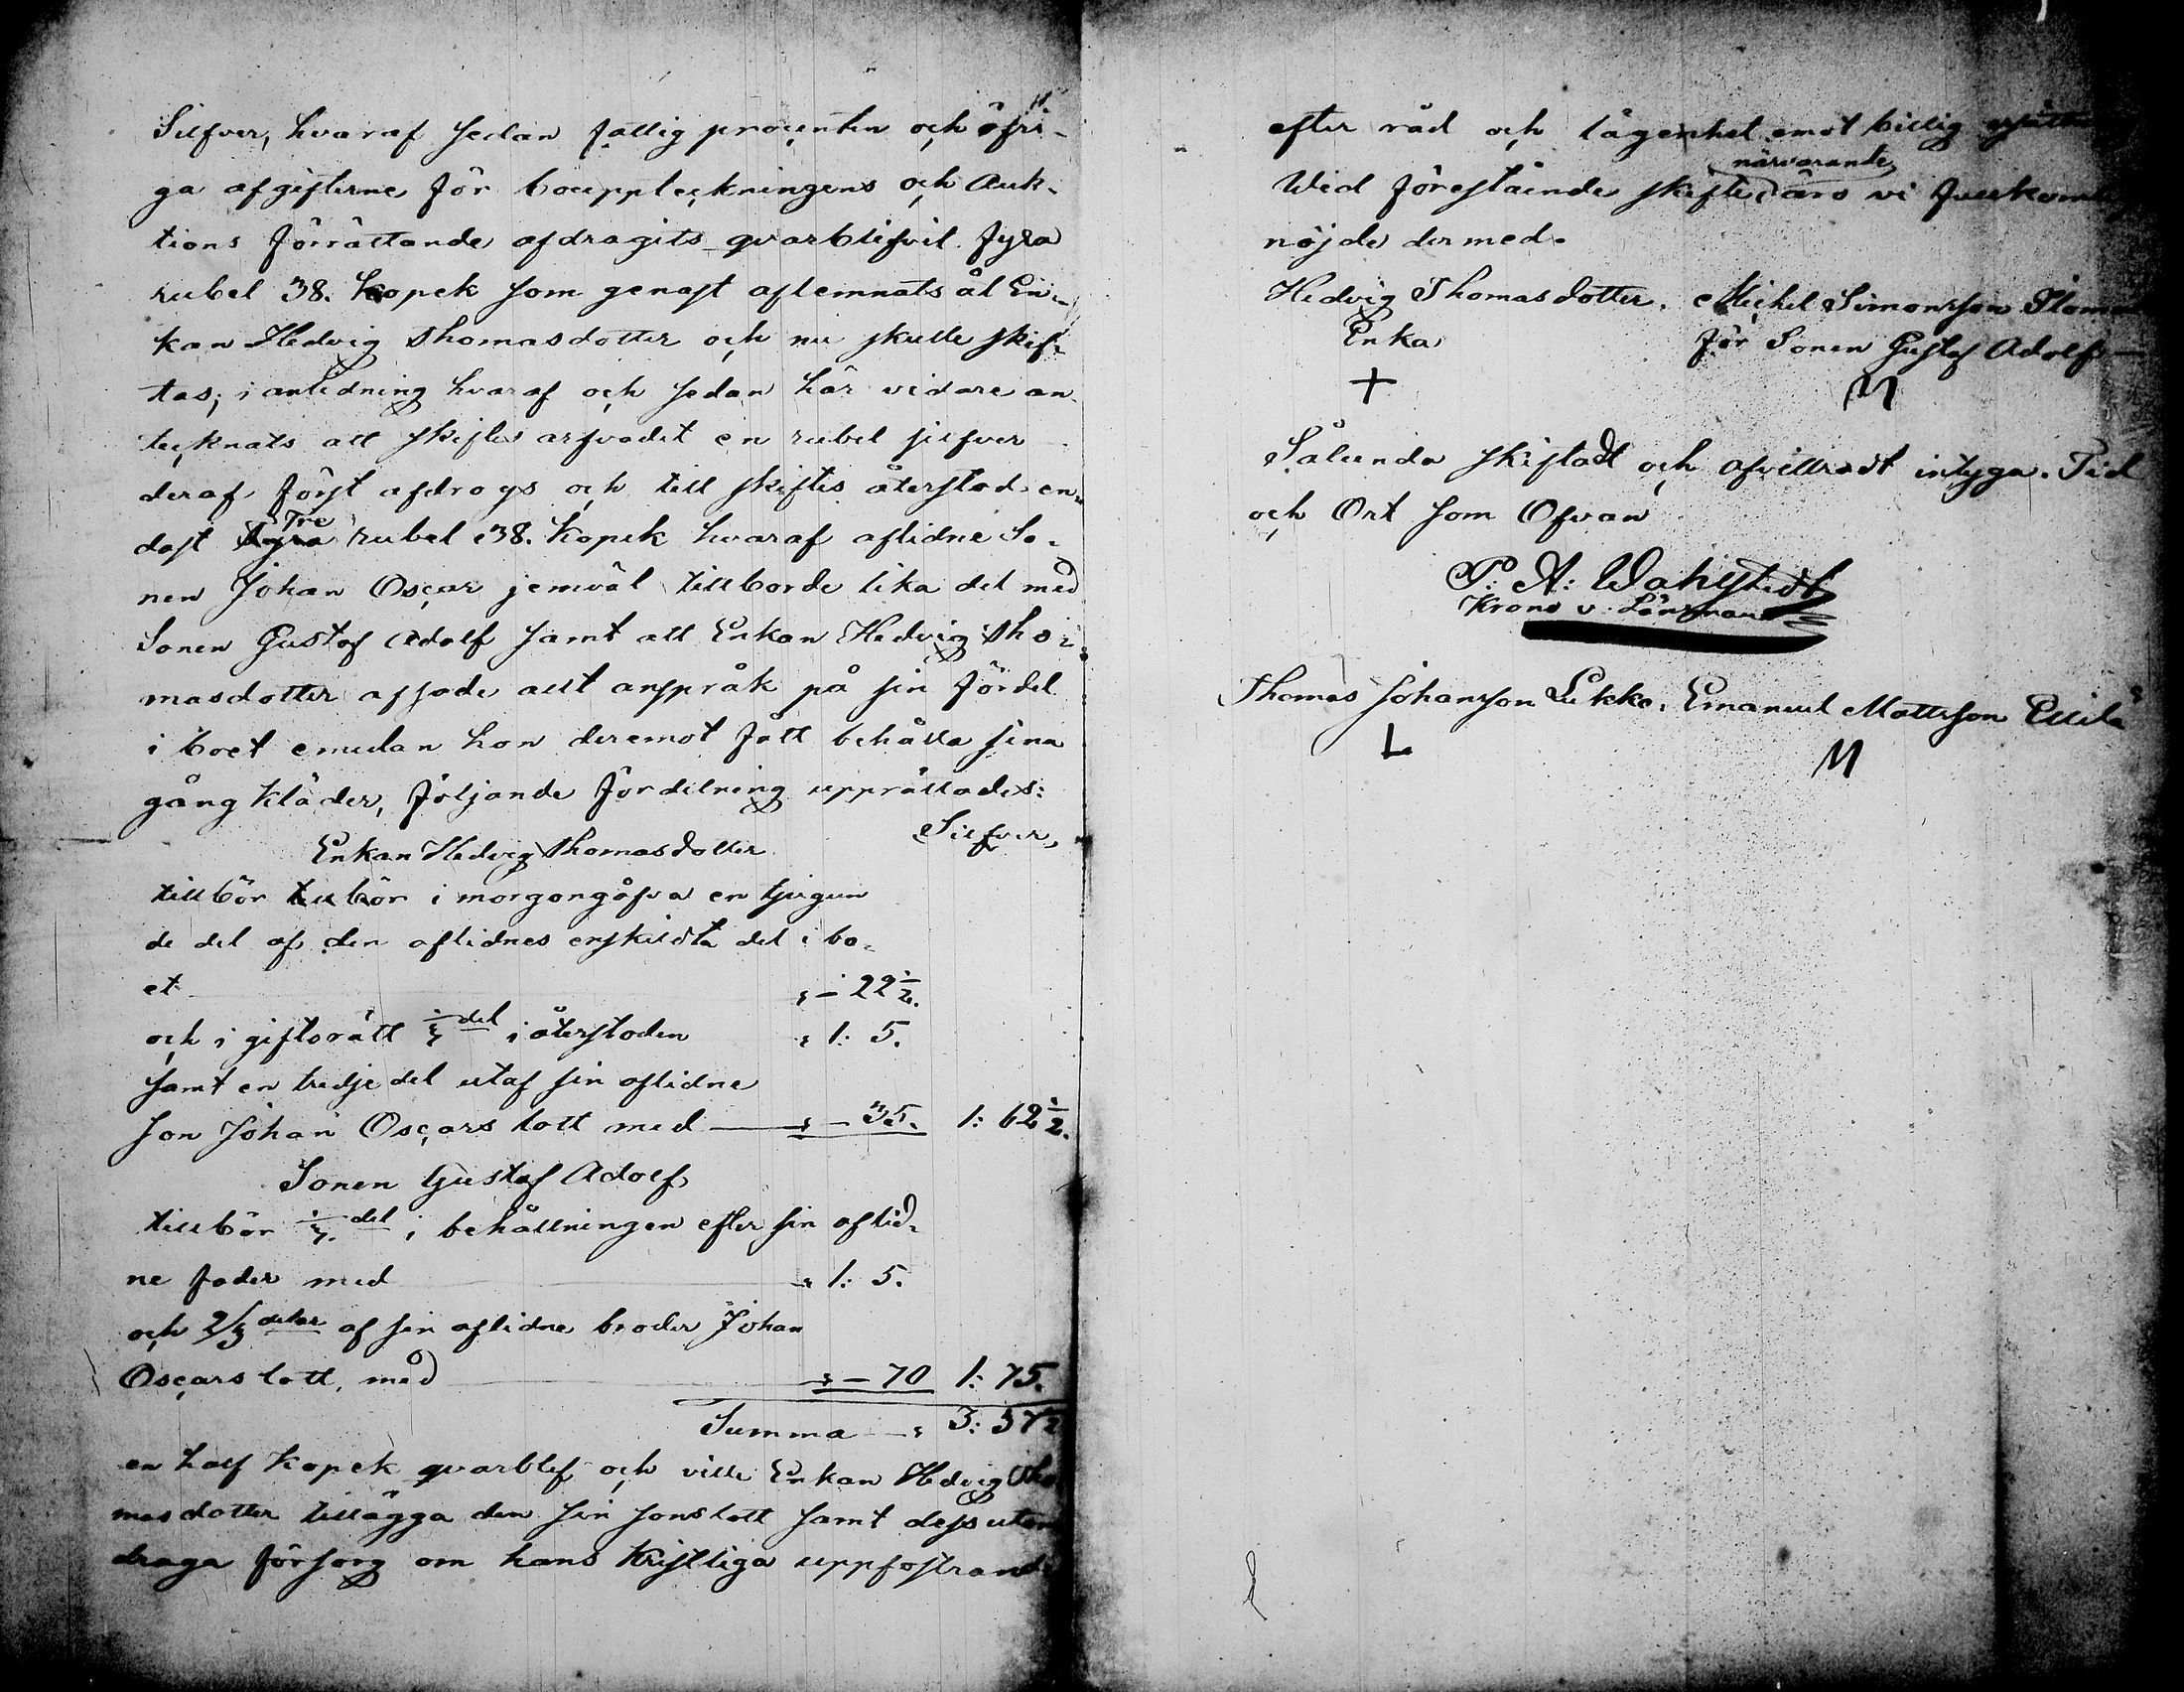 Silfver, hvaraf sedan fattig procenten och öfri-
ga afgifterne för bouppteckningens och Auk-
tions förrättande afdragits qvarblifvit fyra
rubel 38. kopek som genast aflemnats åt En-
kan Hedvig Thomasdotter och nu skulle skif-
tas; i anledning hvaraf och sedan här vidare an-
tecknats att skiftes arfvodet en rubel silfver
deraf först afdrogs och till skiftes återstod en-
dast Tre rubel 38. kopek hvaraf aflidne So-
nen Johan Oscar jemväl tillborde lika del med
Sonen Gustaf Adolf samt att Enkan Hedvig Tho-
masdotter afsade allt anspråk på sin fördel
i boet emedan hon deremot fått behålla sina
gång kläder, följande fördelning upprättades:
Silfver,
Enkan Hedvig Thomasdotter
tillbör tillbör i morgongåfva en tjugun
de del af den aflidnes enskildta del i bo-
et " - 22 1/2.
och i giftorätt 1/3 del i återstoden " 1: 5.
samt en tredje del utaf sin aflidne
son Johan Oscars lott med " - 35. 1: 62 1/2.
Sonen Gustaf Adolf
tillbör 1/3. del i behållningen efter sin aflid-
ne fader med " 1: 5.
och 2/3 delar af sin aflidne broder Johan
Oscars lott, med " - 70 1: 75.
Summa " 3: 37 1/2
en half kopek qvarblef och ville Enkan Hedvig Tho
masdotter tillägga den sin sons lott samt dessutom
draga försorg om hans kristliga uppfostran
efter råd och lägenhet emot billig
närvarande
Wid förestående skifte äro vi
nöjde dermed.
Hedvig Thomasdotter. Michel Simonsson
Enka för Sonen Gustaf Adolf
+ M
Sålunda skiftadt och afvittradt intyga. Tid
och Ort som Ofvan
P: A: Wahlstedt
Krono v. Länsman
Thomas Johansson Emanuel Mattsson
L M